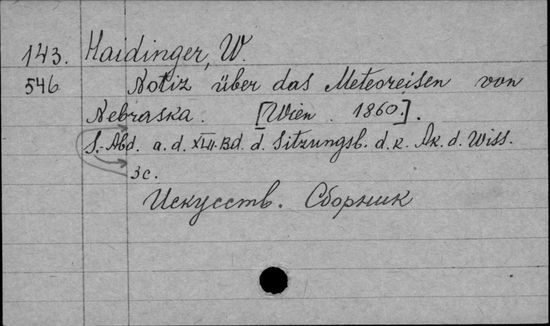 143. Haidinger, W.
546 Notiz über das Meteoreisen von
Nebraska. [Wien. 1860.].
S.-Abd. a. d. XLII. Bd. d. Sitzungsb. d. k. Ak. d. Wiss.
3c.
Искусств. Сборник